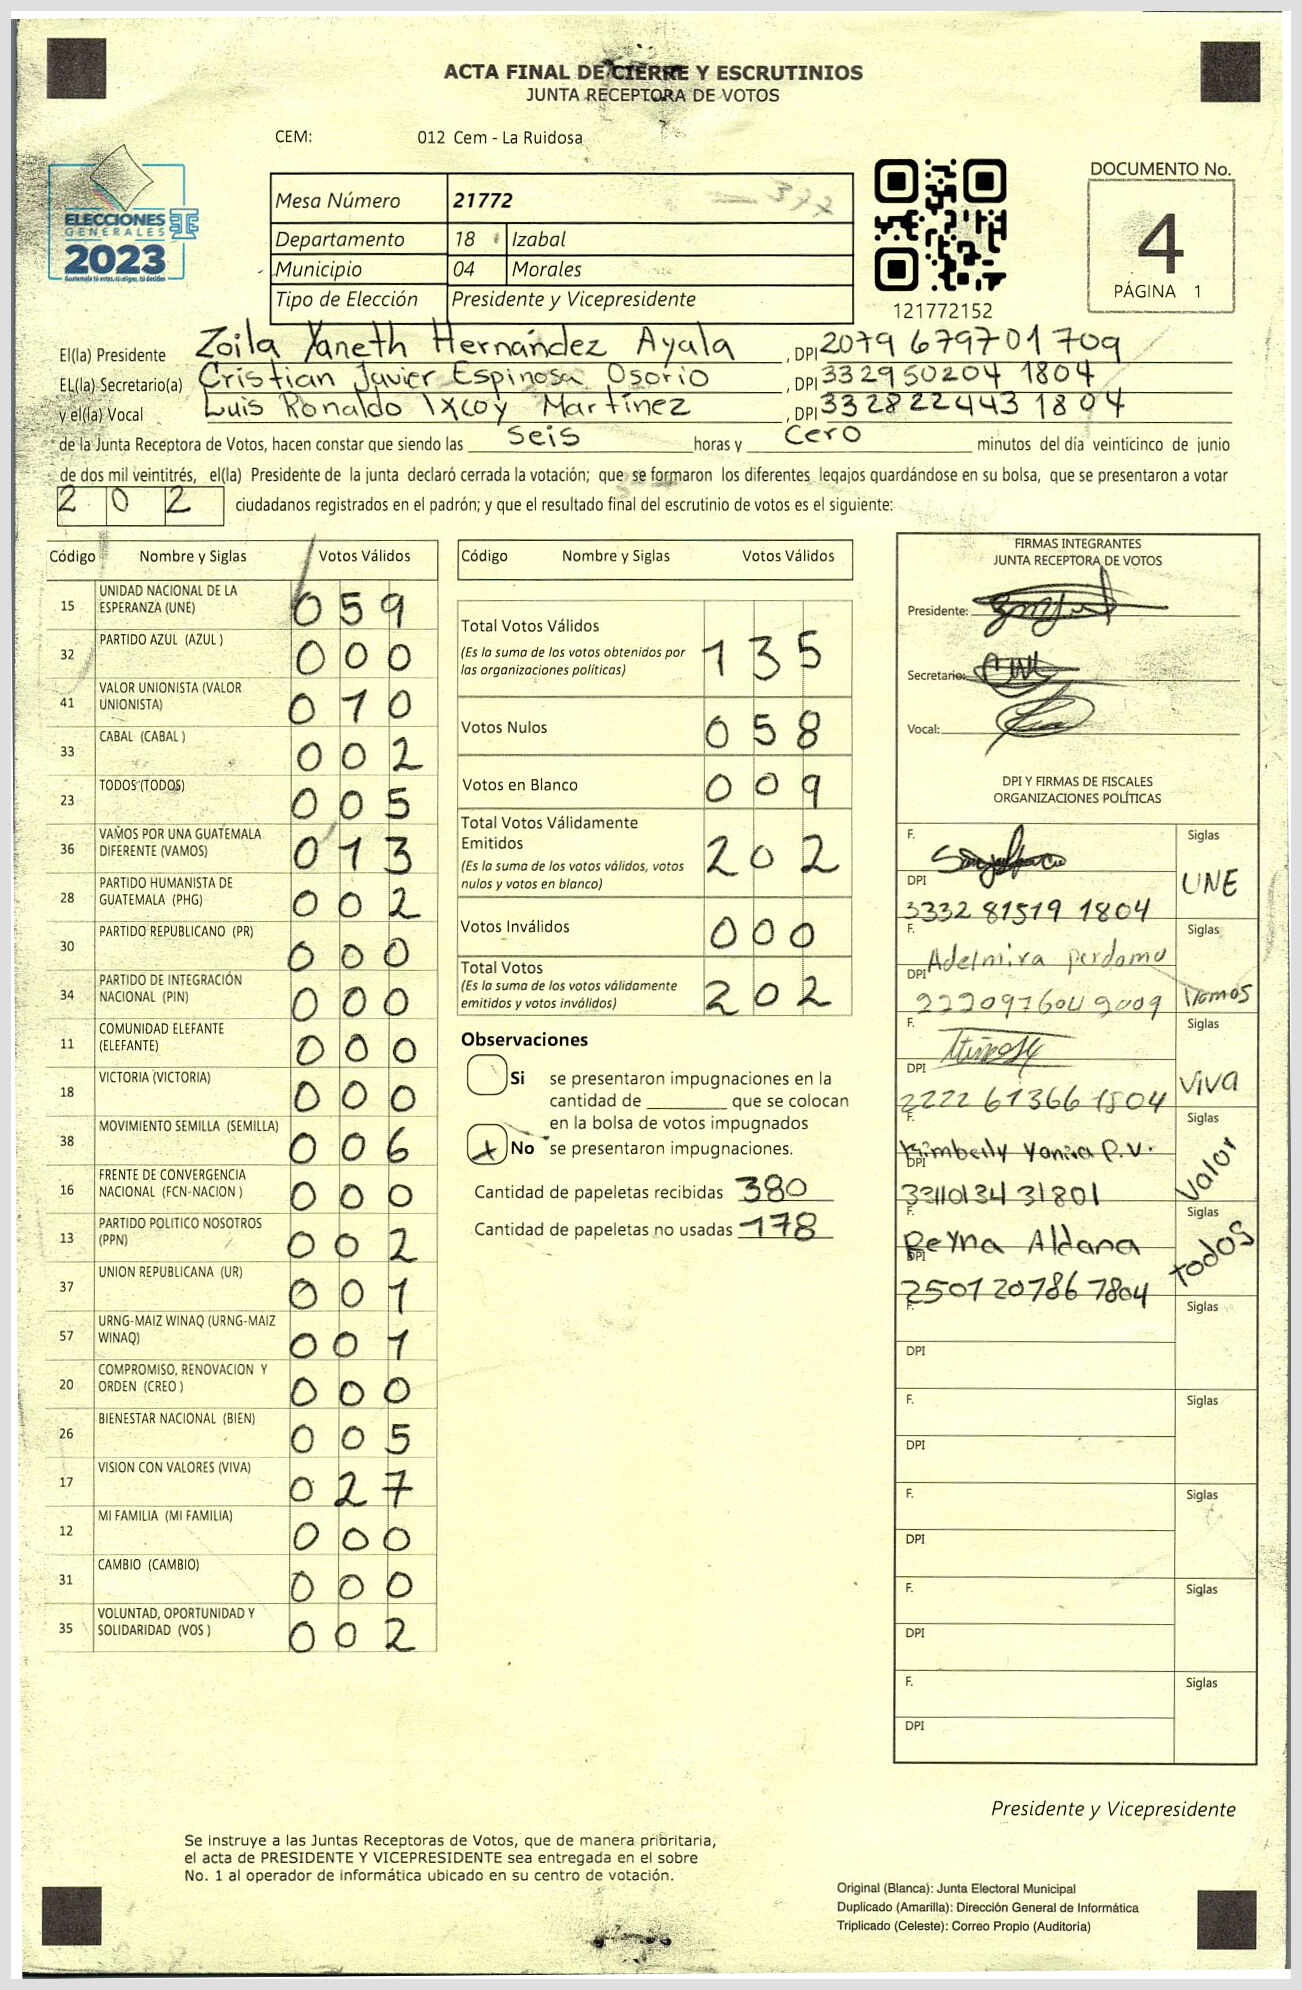 ACTA FINAL DE CIERRE Y ESCRUTINIOS
JUNTA RECEPTORA DE VOTOS
CEM: 012 Cem - La Ruidosa
ELECCIONES
GENERALES
2023
Mesa Número 21772
Departamento 18 Izabal
Municipio 04 Morales
Tipo de Elección Presidente y Vicepresidente
121772152
DOCUMENTO No.
4
PÁGINA 1
El(la) Presidente Zoila Yaneth Hernández Ayala , DPI 2079 67970 1709
EL(la) Secretario(a) Cristian Javier Espinosa Osorio , DPI 332950204 1804
y el(la) Vocal Luis Ronaldo Ixcoy Martínez , DPI 332822443 1804
de la Junta Receptora de Votos, hacen constar que siendo las Seis horas y Cero minutos del día veinticinco de junio
de dos mil veintitrés, el(la) Presidente de la junta declaró cerrada la votación; que se formaron los diferentes legajos guardándose en su bolsa, que se presentaron a votar
202 ciudadanos registrados en el padrón; y que el resultado final del escrutinio de votos es el siguiente:
Código Nombre y Siglas Votos Válidos
15 UNIDAD NACIONAL DE LA ESPERANZA (UNE) 059
32 PARTIDO AZUL (AZUL ) 000
41 VALOR UNIONISTA (VALOR UNIONISTA) 010
33 CABAL (CABAL ) 002
23 TODOS (TODOS) 005
36 VAMOS POR UNA GUATEMALA DIFERENTE (VAMOS) 013
28 PARTIDO HUMANISTA DE GUATEMALA (PHG) 002
30 PARTIDO REPUBLICANO (PR) 000
34 PARTIDO DE INTEGRACIÓN NACIONAL (PIN) 000
11 COMUNIDAD ELEFANTE (ELEFANTE) 000
18 VICTORIA (VICTORIA) 000
38 MOVIMIENTO SEMILLA (SEMILLA) 006
16 FRENTE DE CONVERGENCIA NACIONAL (FCN-NACION ) 000
13 PARTIDO POLITICO NOSOTROS (PPN) 002
37 UNION REPUBLICANA (UR) 001
57 URNG-MAIZ WINAQ (URNG-MAIZ WINAQ) 001
20 COMPROMISO, RENOVACION Y ORDEN (CREO ) 000
26 BIENESTAR NACIONAL (BIEN) 005
17 VISION CON VALORES (VIVA) 027
12 MI FAMILIA (MI FAMILIA) 000
31 CAMBIO (CAMBIO) 000
35 VOLUNTAD, OPORTUNIDAD Y SOLIDARIDAD (VOS ) 002
Código Nombre y Siglas Votos Válidos
Total Votos Válidos 135
(Es la suma de los votos obtenidos por
las organizaciones políticas)
Votos Nulos 058
Votos en Blanco 009
Total Votos Válidamente
Emitidos 202
(Es la suma de los votos válidos, votos
nulos y votos en blanco)
Votos Inválidos 000
Total Votos 202
(Es la suma de los votos válidamente
emitidos y votos inválidos)
Observaciones
Si se presentaron impugnaciones en la
cantidad de ________ que se colocan
en la bolsa de votos impugnados
x No se presentaron impugnaciones.
Cantidad de papeletas recibidas 380
Cantidad de papeletas no usadas 178
FIRMAS INTEGRANTES
JUNTA RECEPTORA DE VOTOS
Presidente:
Secretario:
Vocal:
DPI Y FIRMAS DE FISCALES
ORGANIZACIONES POLÍTICAS
F. Siglas
UNE
DPI 3332 81519 1804
F. Adelmira perdomo Siglas
DPI 2220976042009 Vamos
F. Siglas
DPI 2222 61366 1804 VIVA
F. Kimberly Yanira P.V. Siglas
DPI 3311013431801 Valor
F. Reyna Aldana Siglas
DPI 2501207867804 todos
F. Siglas
DPI
F. Siglas
DPI
F. Siglas
DPI
F. Siglas
DPI
F. Siglas
DPI
Presidente y Vicepresidente
Se instruye a las Juntas Receptoras de Votos, que de manera prioritaria,
el acta de PRESIDENTE Y VICEPRESIDENTE sea entregada en el sobre
No. 1 al operador de informática ubicado en su centro de votación.
Original (Blanca): Junta Electoral Municipal
Duplicado (Amarilla): Dirección General de Informática
Triplicado (Celeste): Correo Propio (Auditoria)